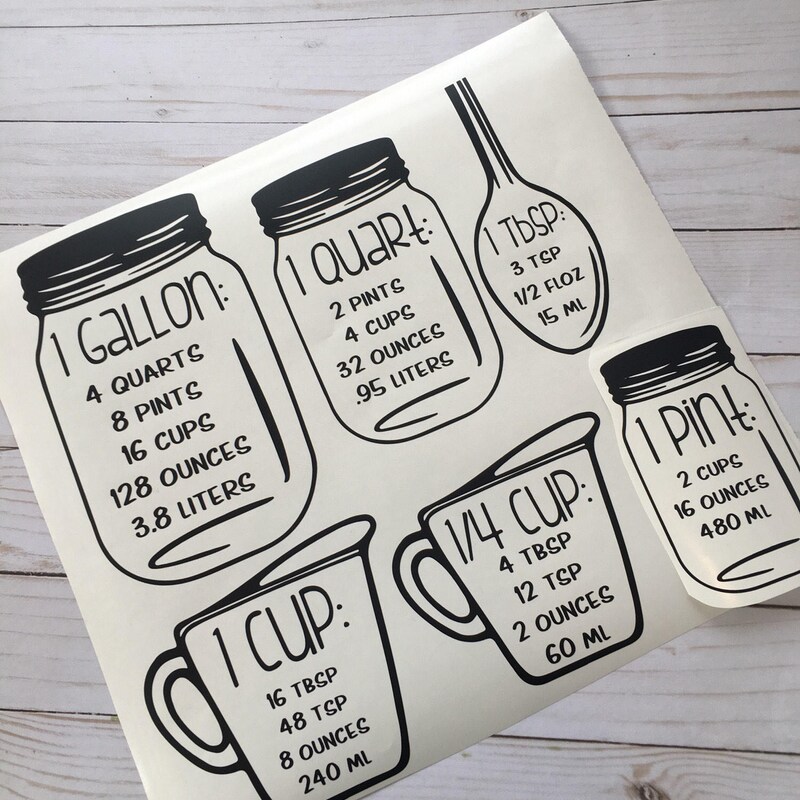 1 Gallon:
4 QUARTS
8 PINTS
16 CUPS
128 OUNCES
3.8 LITERS
1 Quart:
2 PINTS
4 CUPS
32 OUNCES
.95 LITERS
1 Tbsp:
3 TSP
1/2 FLOZ
15 ML
1 Pint:
2 CUPS
16 OUNCES
480 ML
1 Cup:
16 TBSP
48 TSP
8 OUNCES
240 ML
1/4 Cup:
4 TBSP
12 TSP
2 OUNCES
60 ML